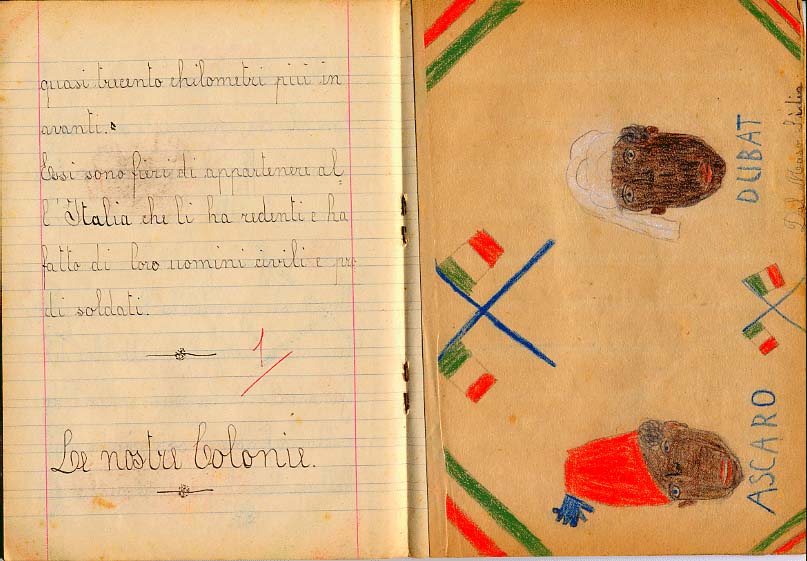 quasi trecento chilometri più in
avanti.
Essi sono fieri di appartenere al-
l'Italia che li ha redenti e ha
fatto di loro uomini civili e pro
di soldati.
1
Le nostre Colonie.
DUBAT
ASCARO